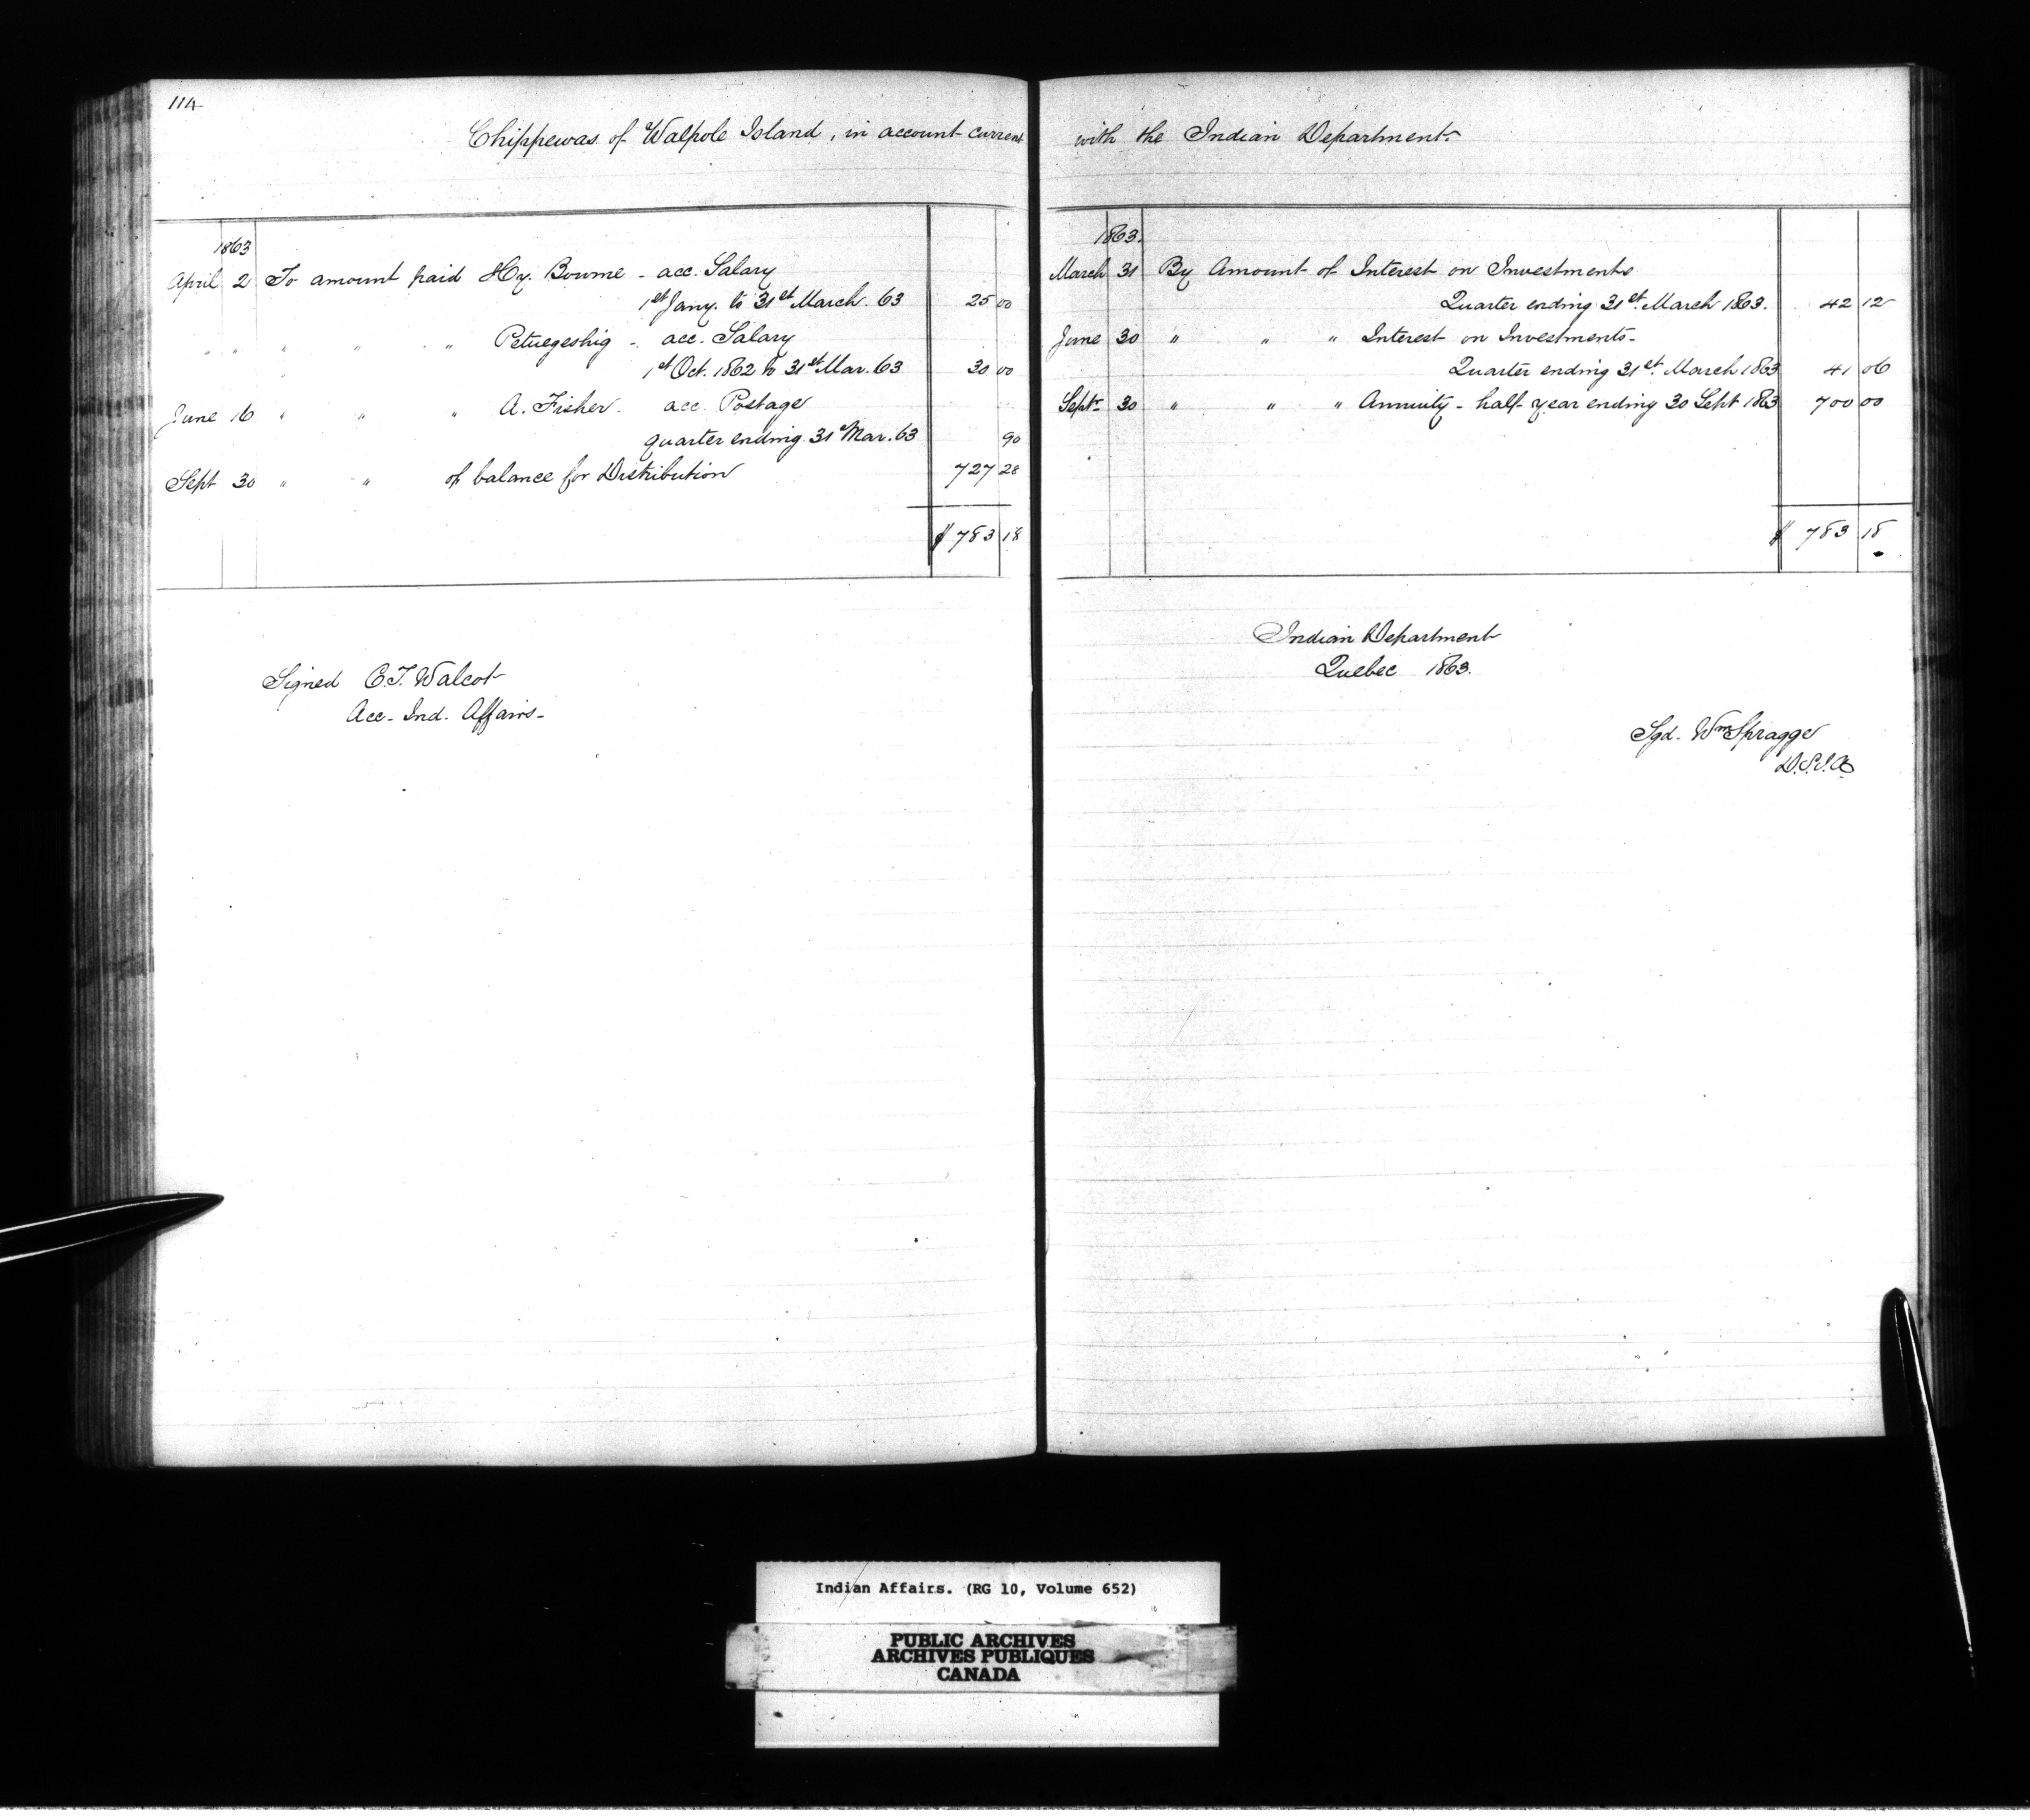 114
Chippewas of Walpole Island, in account current
1863
April 2 To amount paid Hy. Bourne - acc. Salary
1st Jany. to 31st March. 63 25 00
" " " " " Petuegeshig - acc. Salary
1st Oct. 1862 to 31st Mar. 63 30 00
June 16 " " " A. Fisher. acc. Postage
quarter ending 31 Mar. 63 90
Sept 30 " " of balance for Distribution 727 28
$ 783 18
Signed C.T. Walcot
Acc. Ind. Affairs.
with the Indian Department.
1863.
March 31 By Amount of Interest on Investments
Quarter ending 31st March 1863. 42 12
June 30 " " " Interest on Investments.
Quarter ending 31st March 1863 41 06
Septr 30 " " " Annuity - half year ending 30 Sept 1863 700 00
$ 783 18
Indian Department
Quebec 1863.
Sgd. Wm Spragge
D.S.I.A.
Indian Affairs. (RG 10, Volume 652)
PUBLIC ARCHIVES
ARCHIVES PUBLIQUES
CANADA